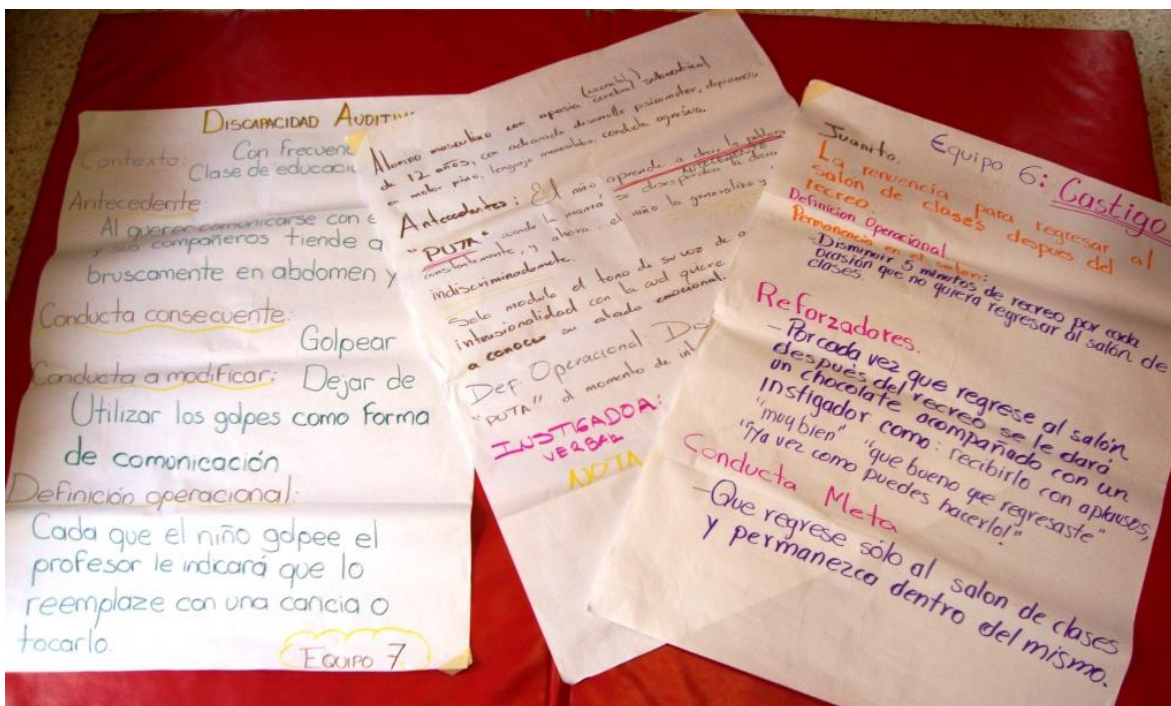 DISCAPACIDAD AUDITIV
Contexto: Con Frecuenc
Clase de educaci
Antecedente:
Al querer comunicarse con e
y sus compañeros tiende a
bruscamente en abdomen y
Conducta consecuente:
Golpear
Conducta a modificar: Dejar de
Utilizar los golpes como Forma
de comonicación
Definición operacional:
Cada que el niño golpee el
profesor le indicará que lo
reemplaze con una caricia o
tocarlo.
EQUIPO 7
Alumno masculino con apasia cerebral
de 12 años, con adecuado desarrollo psicomotor,
motor fino, lenguaje conducta agresiva.
ANTECEDENTE
Antecedentes: El niño aprende a decir la palabra
"PUTA" cuando la mamá se desesperaba la decía
constantemente, y ahora el niño la generalizo y
indiscriminadamete.
Solo modula el tono de su voz de a
intensionalidad con la cual quiere
a conocer su estado emocional.
Def. Operacional Dis
"PUTA" al momento de int
INSTIGADOR:
VERBAL
NOTA:
Equipo 6: Castigo
Juanito.
La renuencia para regresar al
salón de clases después del
recreo.
Definicion Operacional
Permanencia en el salon:
-Disminuir 5 minutos de recreo por cada
ocasión que no quiera regresar al salón de
clases.
Reforzadores.
-Por cada vez que regrese al salón
después del recreo se le dará
un chocolate acompañado con un
instigador como: recibirlo con aplausos,
"muy bien" "que bueno que regresaste"
"¡Ya vez como puedes hacerlo!"
Conducta Meta
-Que regrese sólo al salon de clases
y permanezca dentro del mismo.